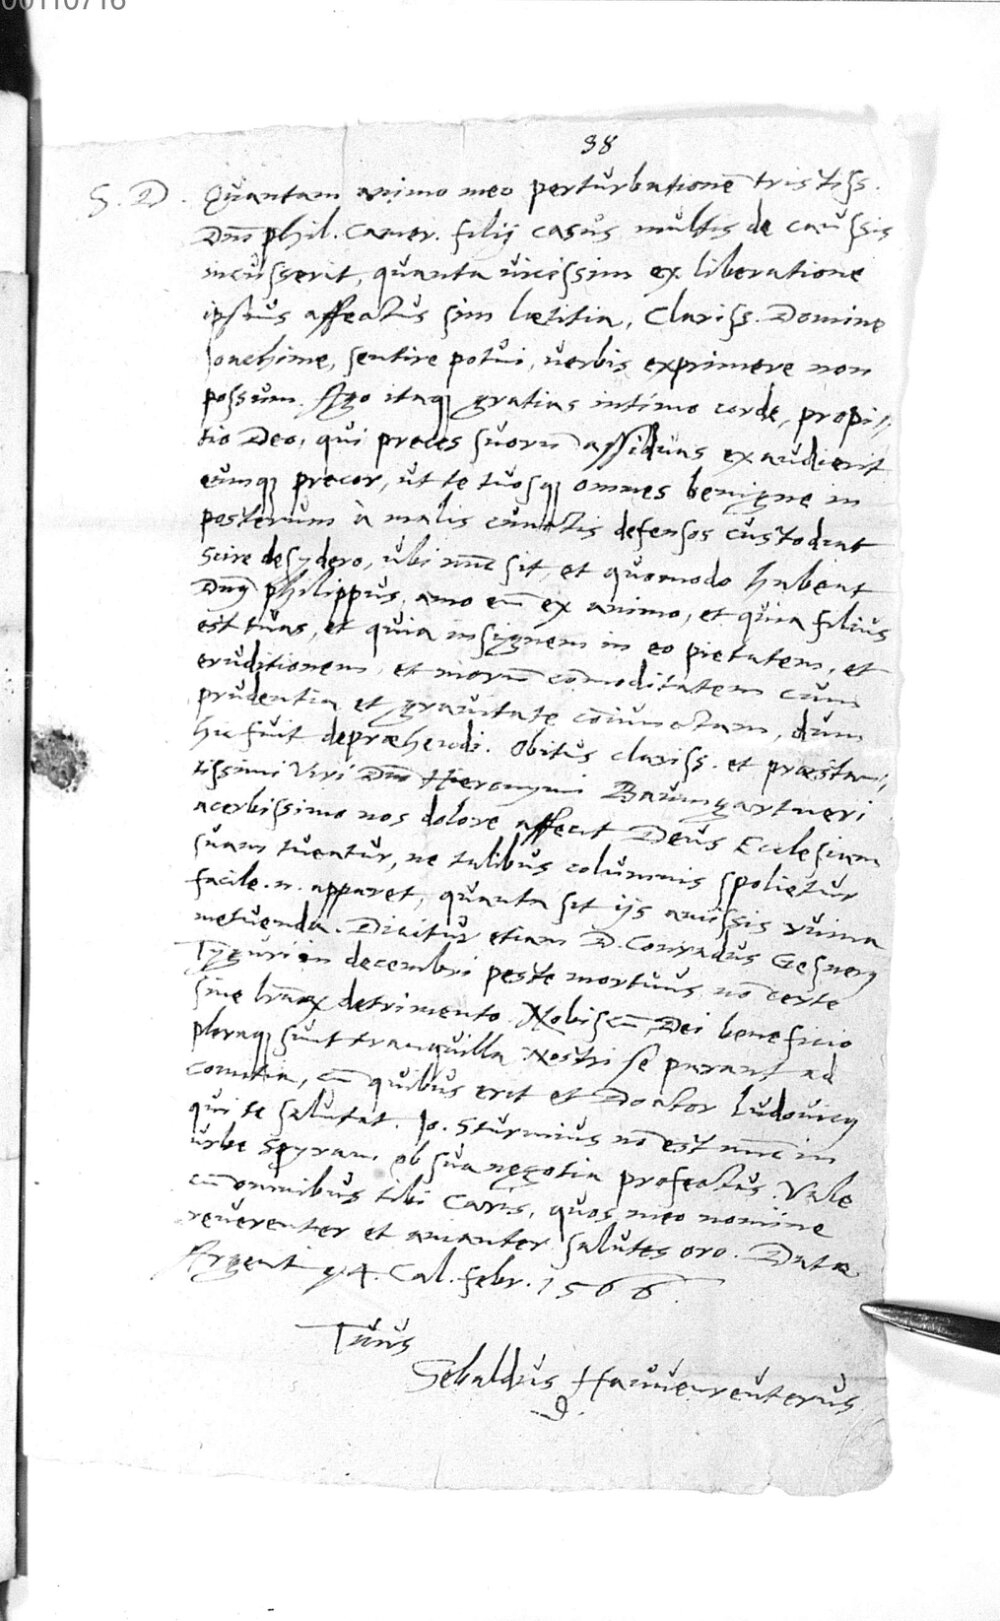 00110716
38
S. D. Quantam animo meo perturbationē tristiss.
Dn̄i phil. Camer. filij casus multis de caussis
incusserit, quanta uicissim ex liberatione
ipsius affectus sim lætitia, Clariss. Domine
Joachime, sentire potui, uerbis exprimere non
possum. Ago itaq gratias intimo corde, propi//
tio Deo, qui preces suorū assiduas exaudierit
eumq precor, ut te tuosq omnes benigne in
posterum à malis cunctis defensos custodiat
Scire desydero, ubi nūc sit, et quomodo habeat
Dn̄s philippus, amo eū ex animo, et quia filius
est tuus, et quia insignem in eo pietatem, et
eruditionem, et morū cōmoditatem cum
prudentia et grauitate cōiunctam, dum
hic fuit depræhendi. Obitus clariss. et præstan//
tissimi Viri Dn̄i Hieronymi Baumgartneri
acerbissimo nos dolore affecit Deus Ecclesiam
suam tueatur, ne talibus columnis spolietur
facile .n. apparet, quanta sit ijs amissis ruina
metuenda. Dicitur etiam D. Conradus Gesnerus
Tyguri in decembri peste mortuus, nō certe
sine l̄rarū detrimento. Nobiscū Dei beneficio
pleraq sunt tranquilla. Nostri se parant ad
comitia, cū quibus erit et Doctor Ludouicus
qui te salutat. Jo. Sturmius nō est nūc in
urbe Spyram ob sua negotia profectus. Vale
cū omnibus tibi Caris, quos meo nomine
reuerenter et amanter salutes oro. Datæ
Argent. 4. Cal. febr. 1566.
Tuus
Sebaldus Hauuenreuterus
D.